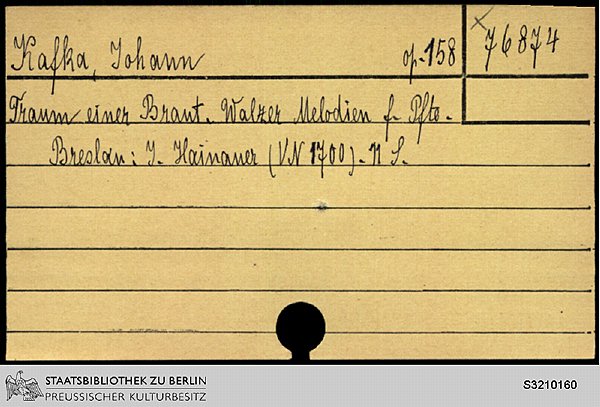 Kafka, Johann op. 158 × 76874
Traum einer Braut. Walzer Melodien f. Pfte.
Breslau: J. Hainauer (VN 1700). 11 S.
STAATSBIBLIOTHEK ZU BERLIN
PREUSSISCHER KULTURBESITZ
S3210160